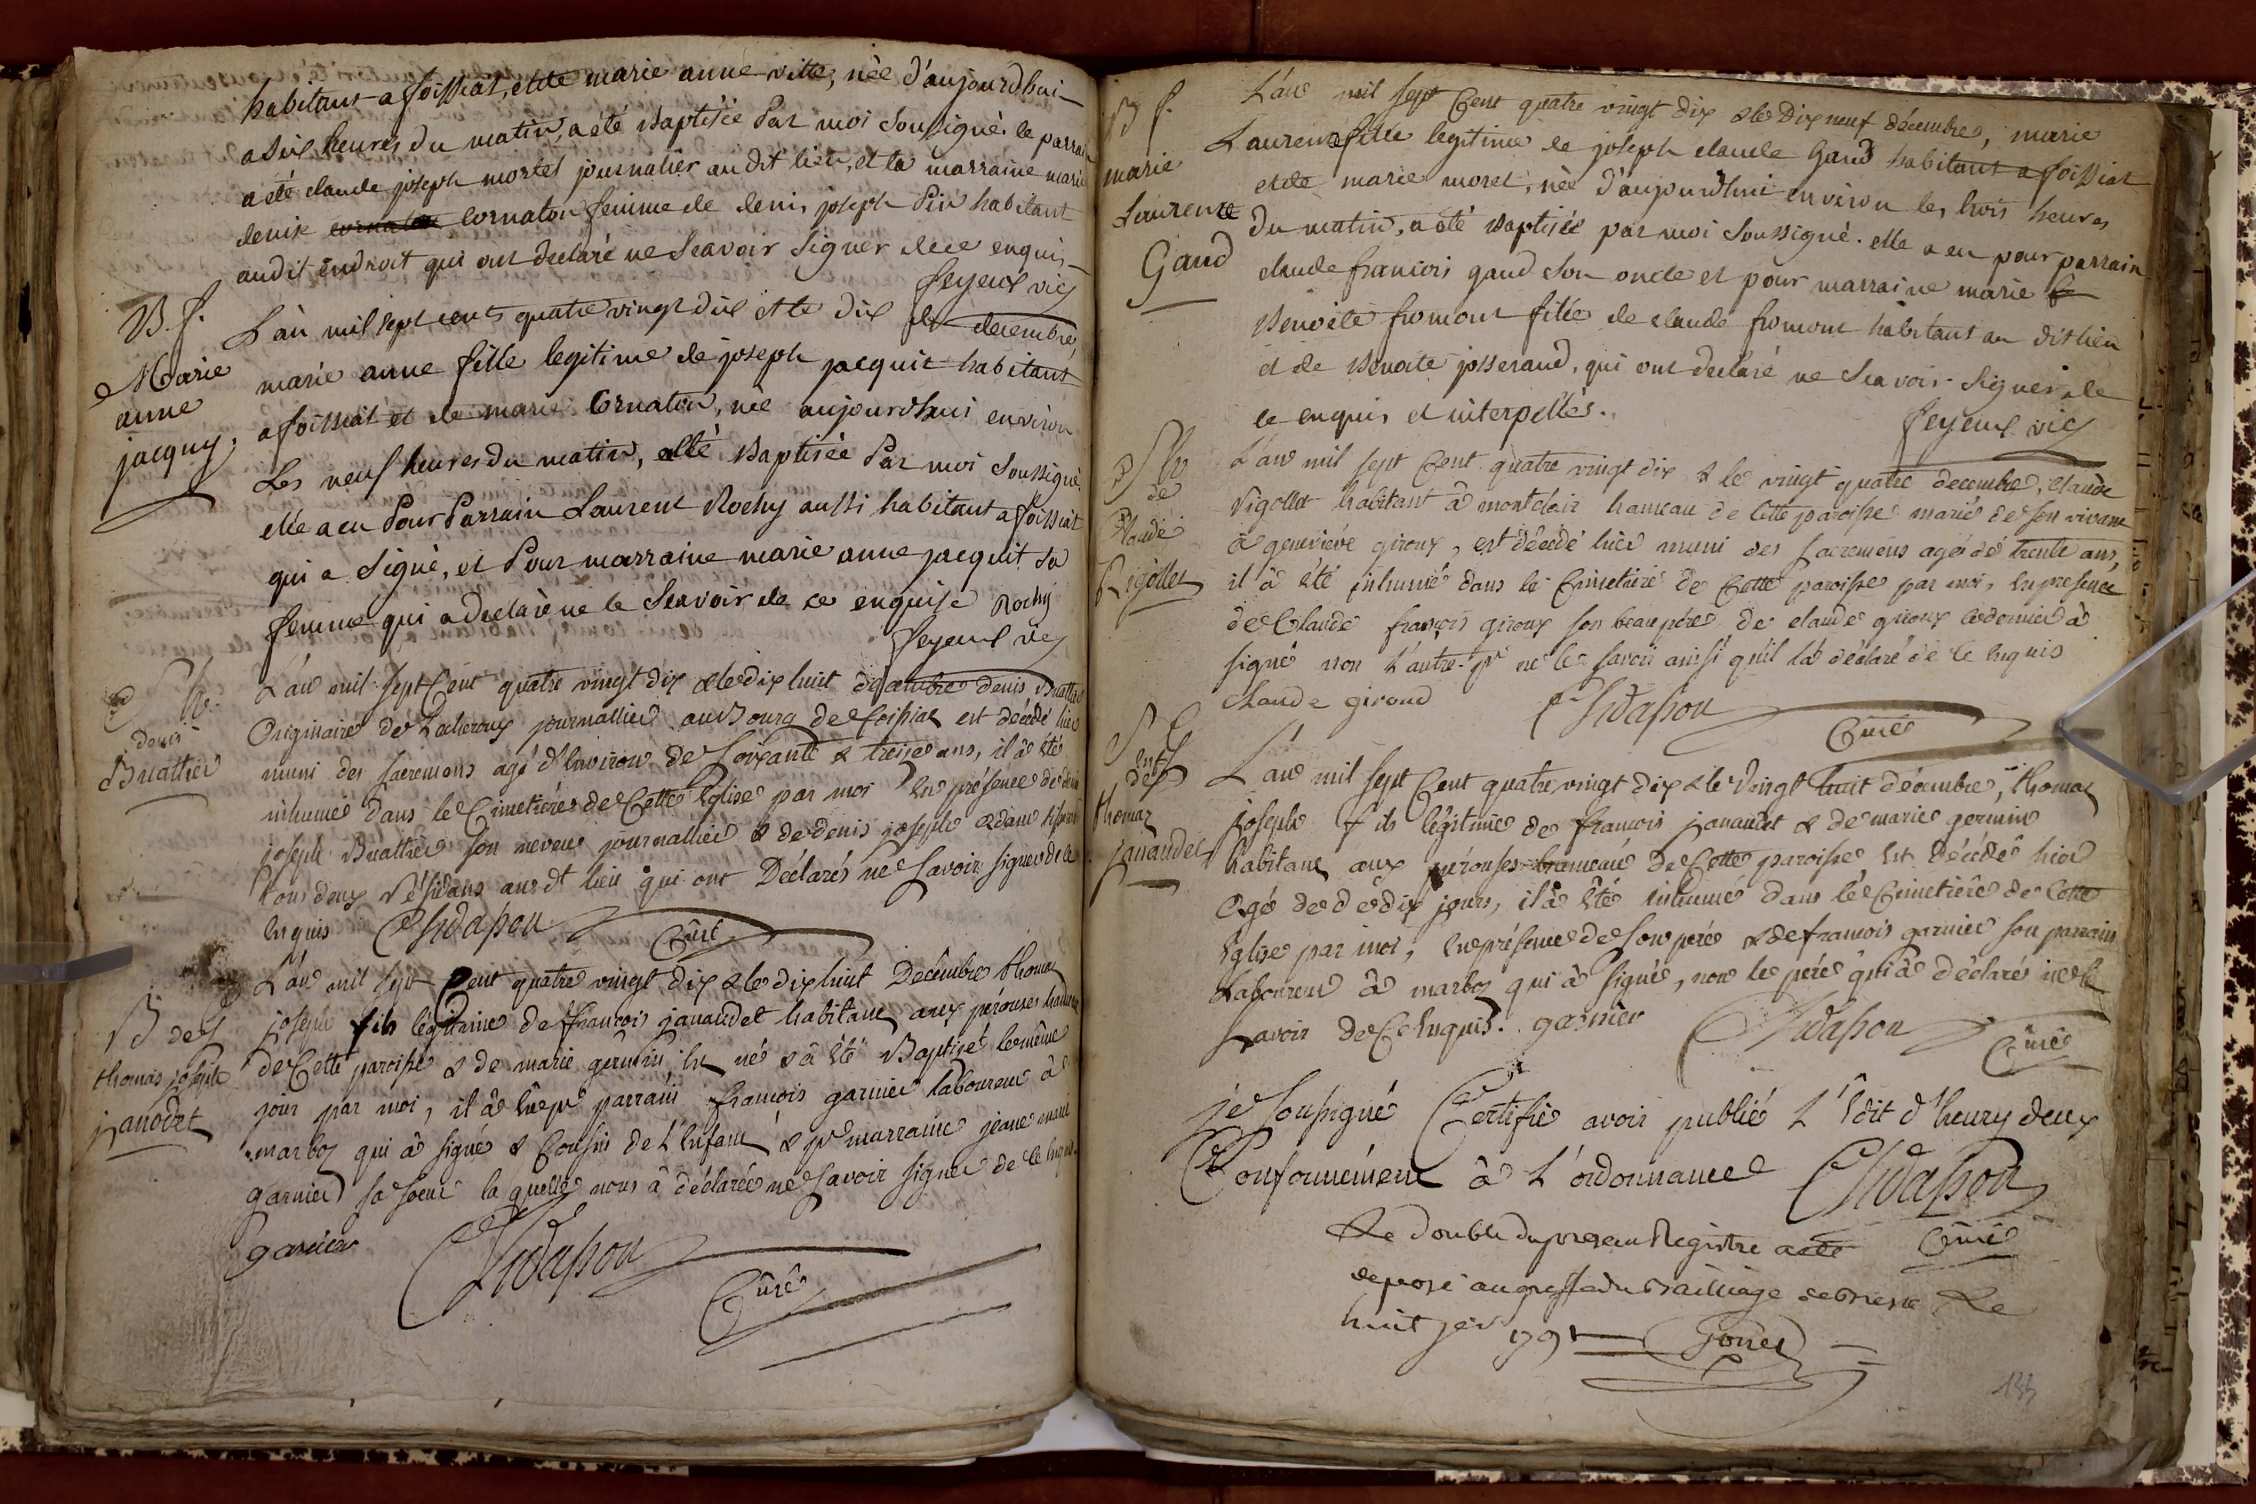 habitant a foissiat, et de marie anne vitte, née d'aujourdhui
a six heures du matin, a été Baptisée Par moi soussigné. le parrain
a été claude joseph mortel journalier au dit lieu, et la marraine marie
denise cornaton femme de denis joseph Pin habitant
audit endroit qui ont declaré ne Scavoir signer de ce enquis
feyeux vic
B. f.
Marie
anne
jacquy.
L'an mil sept cent quatre vingt dix et le dix de decembre,
marie anne fille legitime de joseph jacquit habitant
a foissiat et de marie Cornaton, née aujourdhui environ
Les neuf heures du matin, a été Baptisée Par moi soussigné.
elle a eu Pour Parrain Laurent Rochy aussi habitant a foissiat
qui a signé, et Pour marraine marie anne jacquit sa
femme qui a declaré ne le Scavoir de ce enquise Rochy
feyeux vic
S h.
denis
Buathier
L'an mil sept Cent quatre vingt dix & le dix huit decembre denis Buathier
Originaire de Lescheroux journallier au Bourg de foissiat est décédé hier
muni des sacremens agé d'Environ de soixante & treize ans, il à été
inhumé dans le Cimetiére de Cette Eglise par moi En présence de denis
joseph Buathier son neveu journallier & de denis joseph adam
tous deux Résidans au dt lieu qui ont Déclarés ne savoir signer de ce
Enquis Chidasson Curé
B de f
thomas joseph
janodet
L'an mil sept Cent quatre vingt dix & le dix huit Décembre thomas
joseph fils légitime de françois janaudet habitant aux pérouses hameau
de Cette paroisse & de marie germin, Est né & à été Baptisé le même
jour par moi, il à Eu pr parrain françois garnier laboureur à
marboz qui à signé & Cousin de L'Enfant & pr marraine jeane marie
garnier sa soeur la quelle nous à déclarée ne savoir signer de Ce Enquis.
garnier Chidasson
Curé
B f.
marie
Laurence
Gaud
L'an mil sept Cent quatre vingt dix & le dix neuf décembre, marie
Laurence fille legitime de joseph claude Gaud habitant a foissiat
et de marie morel, née d'aujourdhui environ les trois heures
du matin, a été Baptisée par moi soussigné. elle a eu pour parrain
claude francois gaud son oncle et pour marraine marie
Benoite fromont fille de claude fromont habitant au dit lieu
et de Benoite josserand, qui ont declaré ne Scavoir signer de
ce enquis et interpellés.
feyeux vic
S h
de
Claude
Rigollet
L'an mil sept Cent quatre vingt dix & le vingt quatre decembre, claude
Rigollet habitant à montclair hameau de Cette paroisse marié de son vivant
à geneviéve giroux, est décédé hier muni des sacremens agé de trente ans,
il à été inhumé dans le Cimetiére de Cette paroisse par moi, En présence
de Claude françois giroux son beaupére & de claude giroux Ce dernier à
signé non L'autre pr ne le savoir ainsi qu'il l'à déclaré de Ce Enquis
Claude giroud Chidasson
Curé
S E
Enf
de
thomas
janaudet
L'an mil sept Cent quatre vingt dix & le vingt huit décembre, thomas
joseph fils légitime de francois janaudet & de marie germin
habitant aux pérouses hameau de Cette paroisse Est décédé hier
agé de dix jours, il à été inhumé dans le Cimetiére de Cette
Eglise par moi, En présence de son pere & de francois garnier son parrain
Laboureur à marboz qui à signé, non le pére qui à déclaré ne le
savoir de Ce Enquis. garnier Chidasson
Curé
je soussigné Certifie avoir publié L'Edit d'henry deux
Conformément à L'ordonnance Chidasson
Curé
Le double du present Registre a eté
deposé au greffe du Bailliage de Bresse Le
huit jer 1791
133